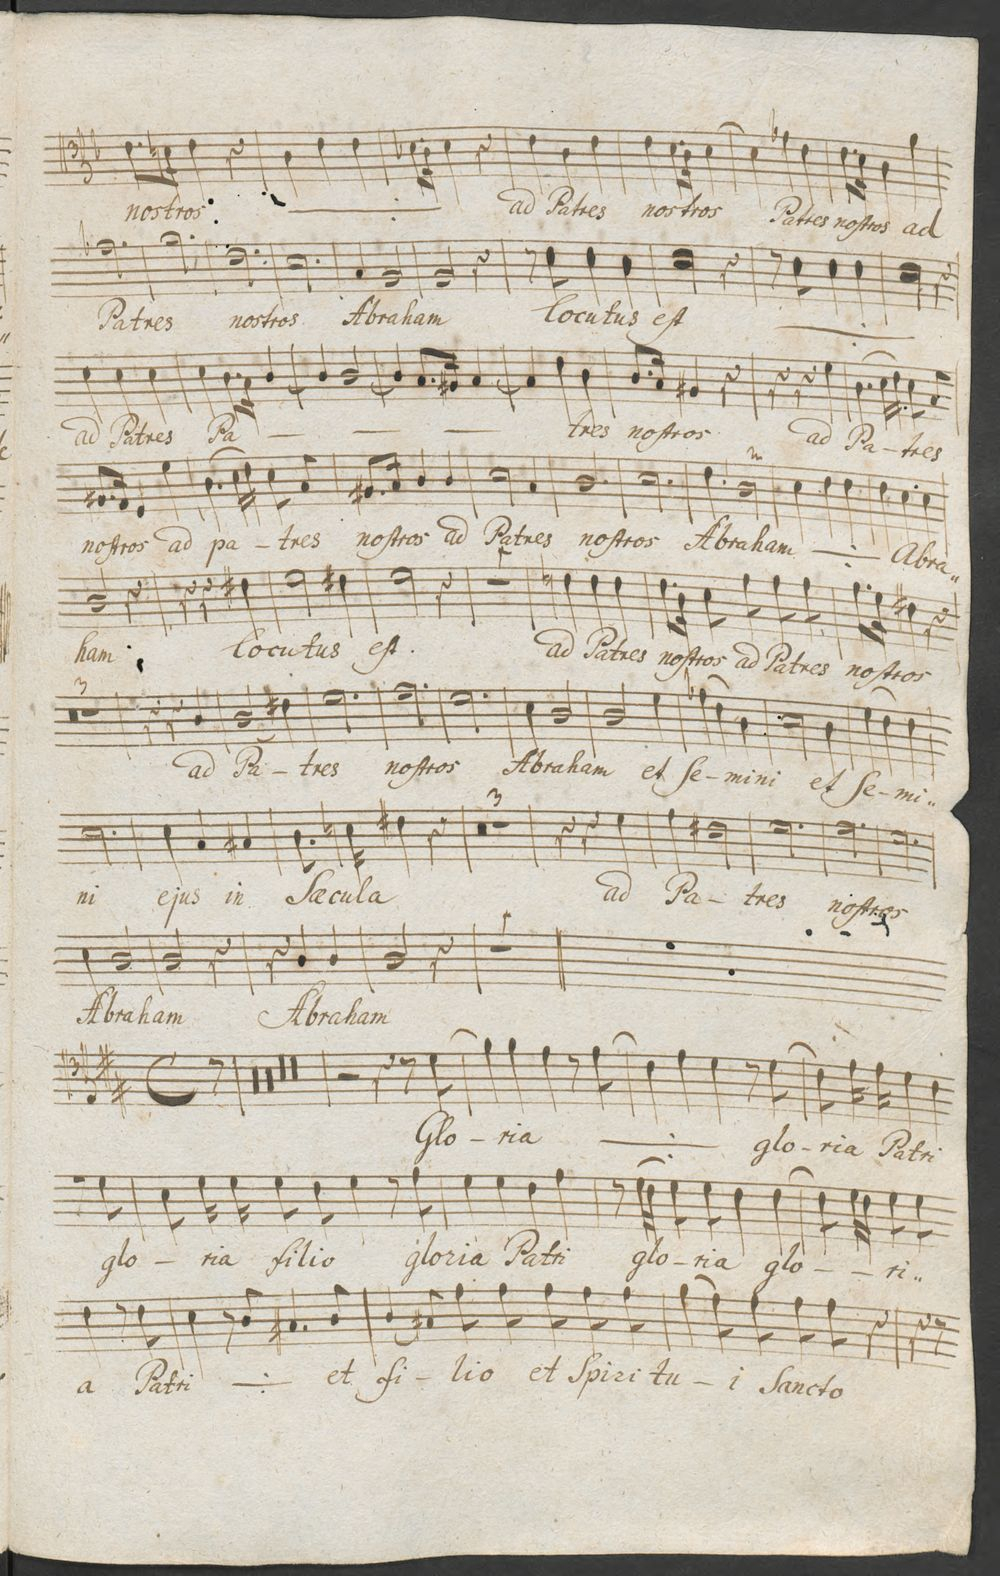 nostros ad Patres nostros Patres nostros ad
Patres nostros Abraham locutus est
ad Patres Pa - - - tres nostros ad Pa - tres
nostros ad pa - tres nostros ad Patres nostros Abraham Abra„
ham locutus est. ad Patres nostros ad Patres nostros
3
ad Pa - tres nostros Abraham et Se - mini et Se - mi„
3
ni ejus in Sæcula ad Pa - tres nostros
Abraham Abraham
Glo - ria glo - ria Patri
glo - ria filio gloria Patri glo - ria glo - - ri„
a Patri et fi - lio et Spiri tu - i Sancto